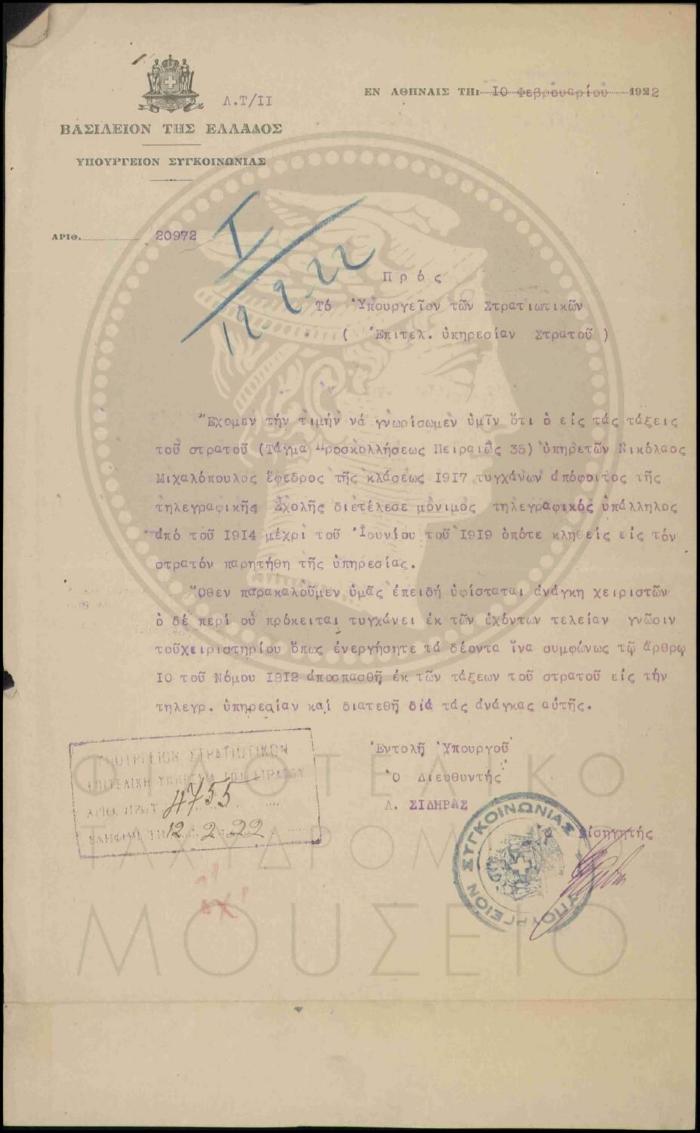 Λ.Τ/ΙΙ
ΕΝ ΑΘΗΝΑΙΣ ΤΗΙ 10 Φεβρουαρίου 1922
ΒΑΣΙΛΕΙΟΝ ΤΗΣ ΕΛΛΑΔΟΣ
ΥΠΟΥΡΓΕΙΟΝ ΣΥΓΚΟΙΝΩΝΙΑΣ
ΑΡΙΘ. 20972
Ι
12 2 22
Πρός
Τό Ὑπουργεῖον τῶν Στρατιωτικῶν
( Ἐπιτελ. ὑπηρεσίαν Στρατοῦ )
Ἔχομεν τήν τιμήν νά γνωρίσωμεν ὑμῖν ὅτι ὁ εἰς τάς τάξεις
τοῦ στρατοῦ (Τάγμα Προσκολλήσεως Πειραιῶς 35) ὑπηρετῶν Νικόλαος
Μιχαλόπουλος ἔφεδρος τῆς κλάσεως 1917 τυγχάνων ἀπόφοιτος τῆς
τηλεγραφικῆς Σχολῆς διετέλεσε μόνιμος τηλεγραφικός ὑπάλληλος
ἀπό τοῦ 1914 μέχρι τοῦ Ἰουνίου τοῦ 1919 ὁπότε κληθείς εἰς τόν
στρατόν παρητήθη τῆς ὑπηρεσίας.
Ὅθεν παρακαλοῦμεν ὑμᾶς ἐπειδή ὑφίσταται ἀνάγκη χειριστῶν
ὁ δέ περί οὗ πρόκειται τυγχάνει ἐκ τῶν ἐχόντων τελείαν γνῶσιν
τοῦχειριστηρίου ὅπως ἐνεργήσητε τά δέοντα ἵνα συμφώνως τῷ ἄρθρῳ
10 τοῦ Νόμου 1912 ἀποσπασθῇ ἐκ τῶν τάξεων τοῦ στρατοῦ εἰς τήν
τηλεγρ. ὑπηρεσίαν καί διατεθῇ διά τάς ἀνάγκας αὐτῆς.
Ἐντολῇ Ὑπουργοῦ
Ὁ Διευθυντής
Λ. ΣΙΔΗΡΑΣ
εἰσηγητής
ΥΠΟΥΡΓΕΙΟΝ ΣΤΡΑΤΙΩΤΙΚΩΝ
ΕΠΙΤΕΛΙΚΗ ΥΠΗΡΕΣΙΑ ΤΟΥ ΣΤΡΑΤΟΥ
ΑΡΙΘ. ΠΡΩΤ. 4755
12 2 22
ΥΠΟΥΡΓΕΙΟΝ ΣΥΓΚΟΙΝΩΝΙΑΣ
ΦΙΛΟΤΕΛΙΚΟ
ΤΑΧΥΔΡΟΜΙΚΟ
ΜΟΥΣΕΙΟ